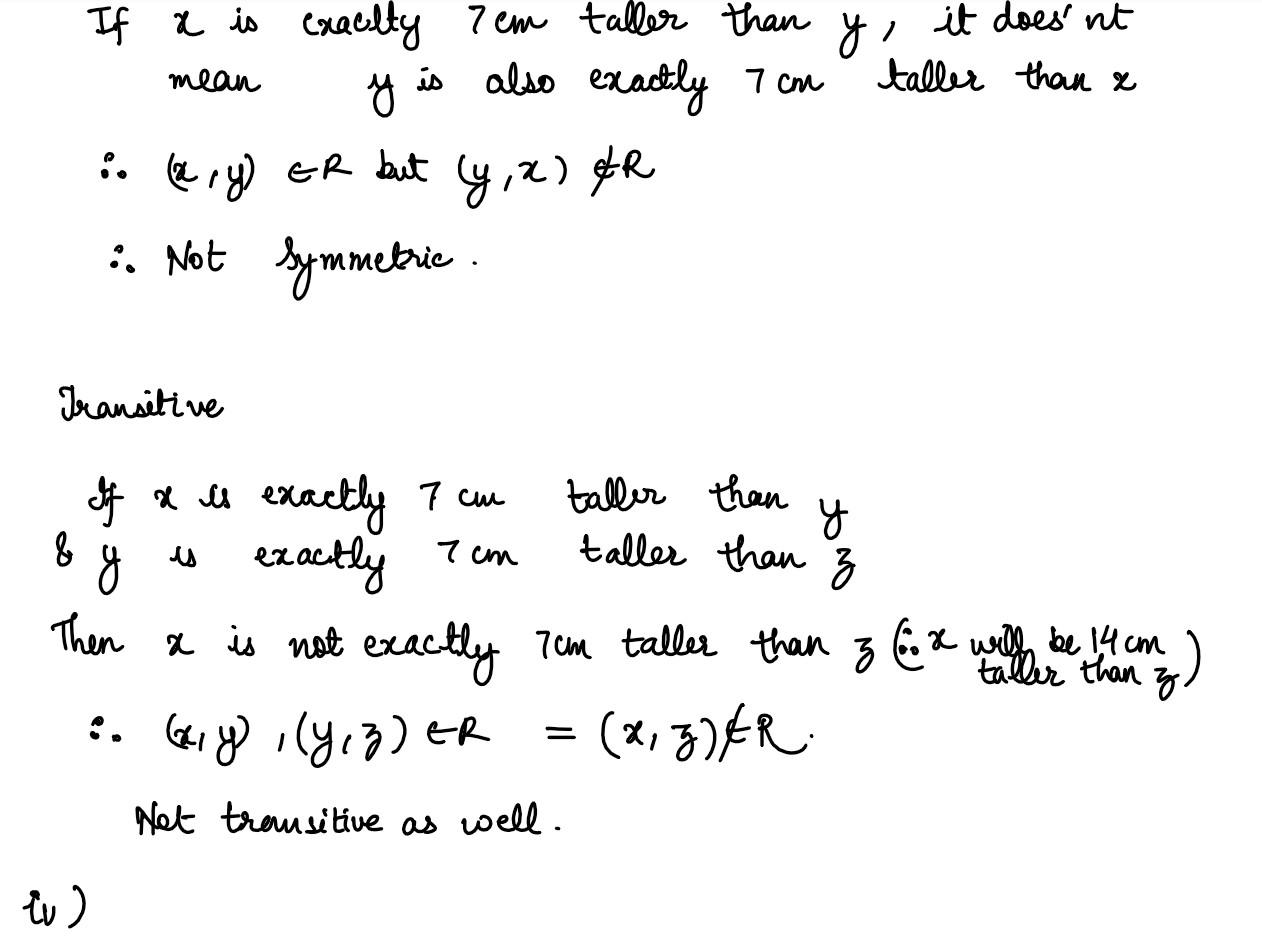 If x is exaclty 7 cm taller than y, it does'nt
mean y is also exactly 7 cm taller than x
∴ (x,y) ∈R but (y,x) ∉R
∴ Not Symmetric.
Transitive
If x is exactly 7 cm taller than y
& y is exactly 7 cm taller than z
Then x is not exactly 7cm taller than z (∵ x will be 14 cm
taller than z)
∴ (x,y) ,(y,z) ∈R = (x,z)∉R.
Not transitive as well.
iv)